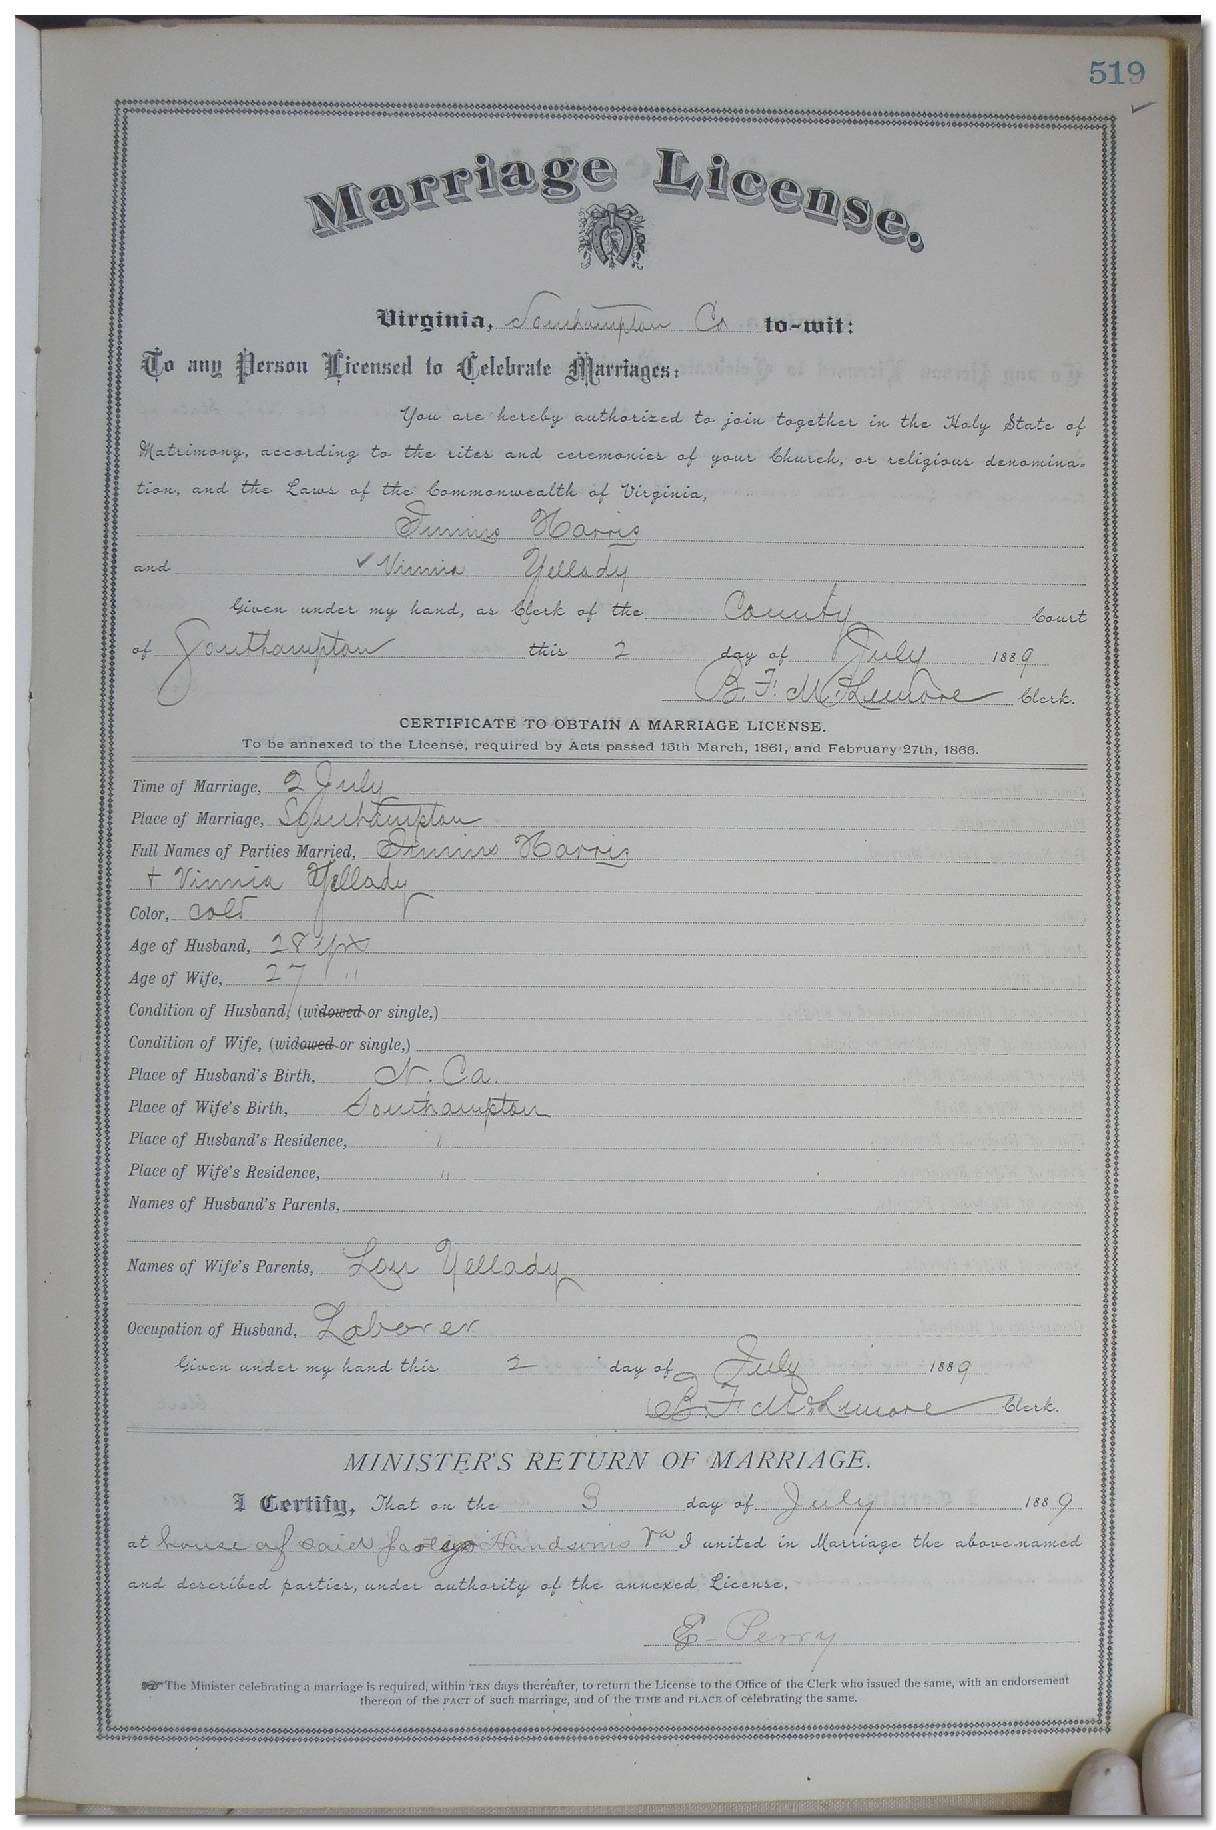 519
Marriage License.
Virginia, Southampton Co to-wit:
To any Person Licensed to Celebrate Marriages:
You are hereby authorized to join together in the Holy State of
Matrimony, according to the rites and ceremonies of your Church, or religious denomina-
tion, and the Laws of the Commonwealth of Virginia,
Junius Harris
and ✓ Vinnia Yellady
Given under my hand, as Clerk of the County Court
of Southampton this 2 day of July 1889
B. F. McLemore Clerk.
CERTIFICATE TO OBTAIN A MARRIAGE LICENSE.
To be annexed to the License, required by Acts passed 15th March, 1861, and February 27th, 1866.
Time of Marriage, 2 July
Place of Marriage, Southampton
Full Names of Parties Married, Junius Harris
+ Vinnia Yellady
Color, cold
Age of Husband, 28 yrs
Age of Wife, 27 "
Condition of Husband, (widowed or single,)
Condition of Wife, (widowed or single,)
Place of Husband's Birth, N. Ca.
Place of Wife's Birth, Southampton
Place of Husband's Residence, "
Place of Wife's Residence, "
Names of Husband's Parents,
Names of Wife's Parents, Lou Yellady
Occupation of Husband, Laborer
Given under my hand this 2 day of July 1889
B. F. McLemore Clerk.
MINISTER'S RETURN OF MARRIAGE.
I Certify, That on the 3 day of July 1889
at house of said Handsoms Va I united in Marriage the above-named
and described parties, under authority of the annexed License.
E - Perry
The Minister celebrating a marriage is required, within TEN days thereafter, to return the License to the Office of the Clerk who issued the same, with an endorsement
thereon of the FACT of such marriage, and of the TIME and PLACE of celebrating the same.